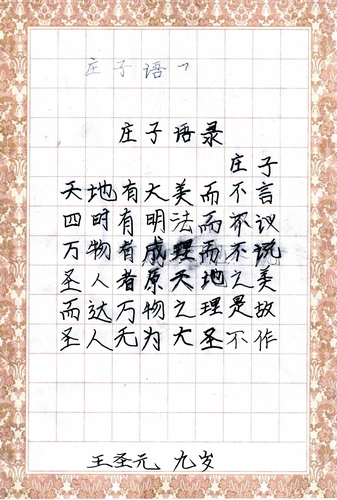 庄子语
庄子语录
庄子
天地有大美而不言
四时有明法而不议
万物有成理而不说
圣人者原天地之美
而达万物之理是故
圣人无为大圣不作
王圣元 九岁